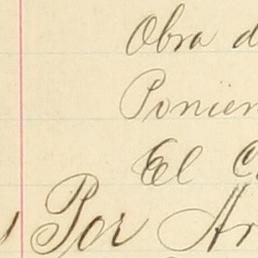 Obra d
Ponien
El C
Por Ar